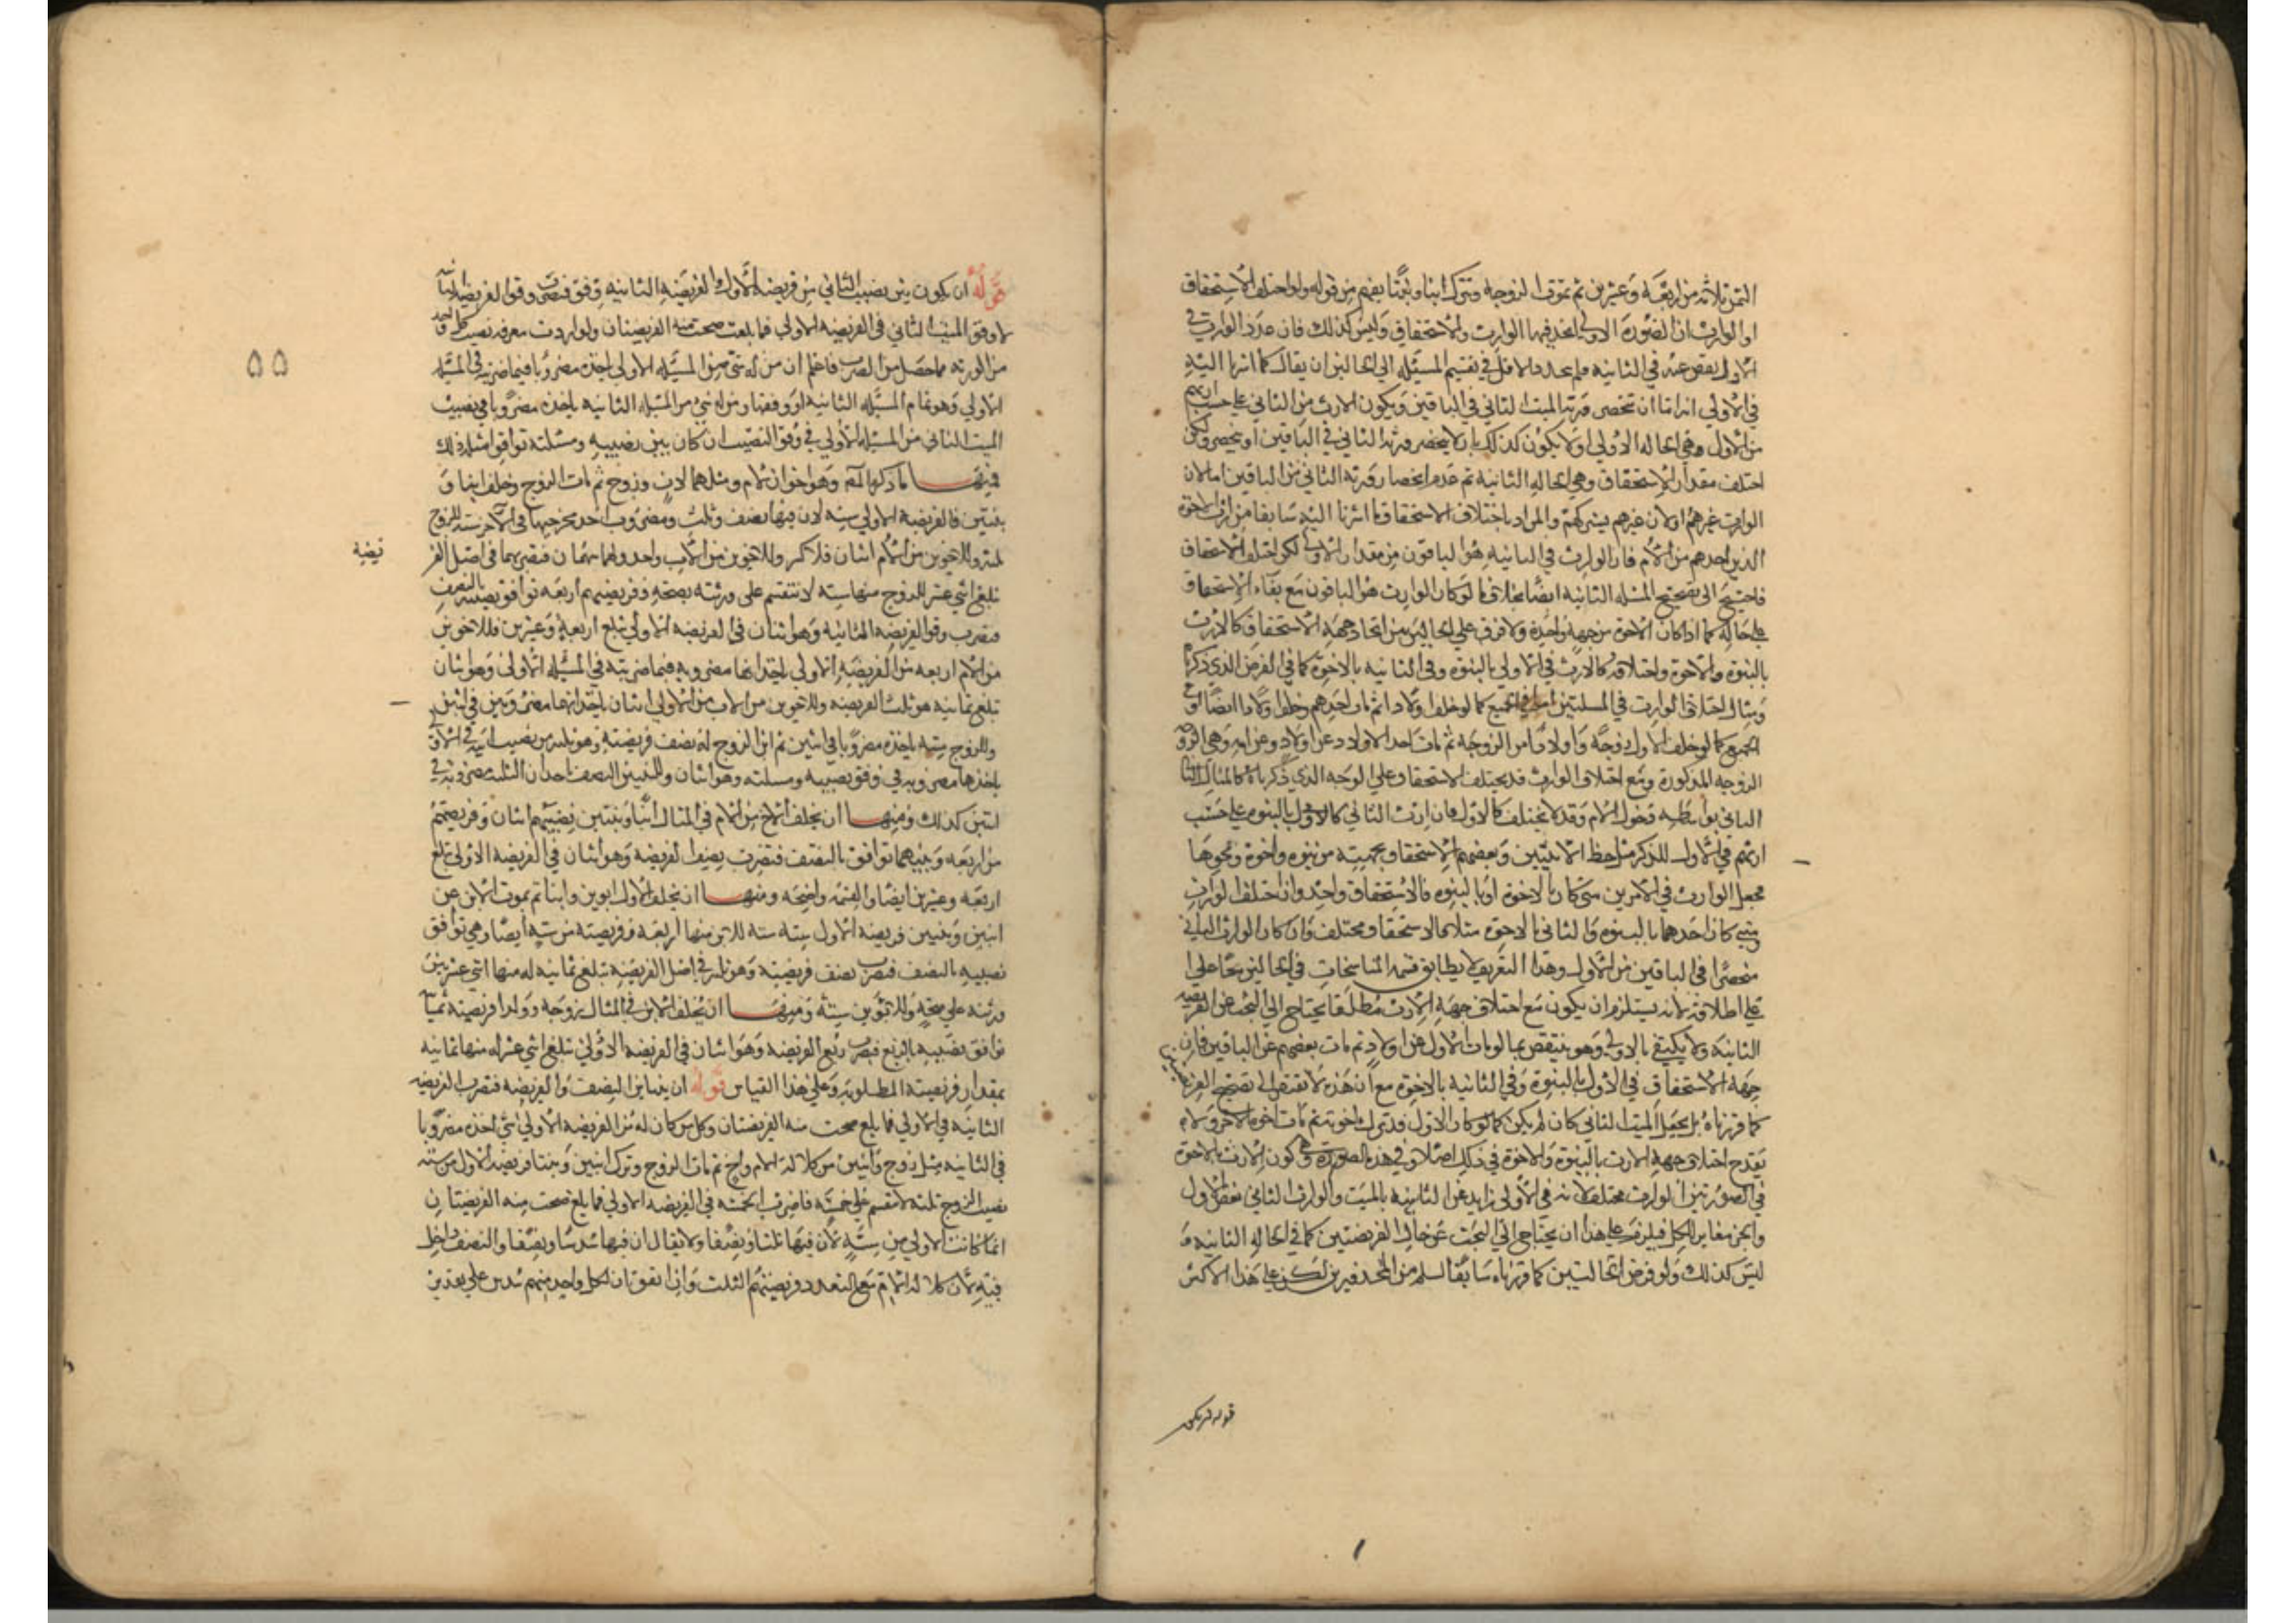 الثمن ثلاثة من اربعة وعشرين ثم تموت الزوجة وتترك ابنا وبنتا يفهم من قوله ولو اختلف الاستحقاق
او الوارث ان الصورة الاولى اتحد فيها الوارث والاستحقاق وليس كذلك فان عدد الوارث في
الاول ينقص عنه في الثانية فلم يتحد والاقل في تقسيم المسئلة الى الحالين ان يقال كما اشرنا اليه
في الاولى اما ان تنحصر ورثة الميت الثاني في الباقين ويكون الارث من الثاني على حسب ارثهم
من الاول وهي الحالة الاولى او لا يكون كذلك بان لا ينحصر ورثة الثاني في الباقين او ينحصر ولكن
اختلف مقدار الاستحقاق وهي الحالة الثانية ثم عدم انحصار ورثة الثاني من الباقين اما لان
الوارث غيرهم او لان غيرهم يشركهم والمراد باختلاف الاستحقاق ما اشرنا اليه سابقا من ارث الاخوة
الذين احدهم من الام فان الوارث في الثانية هو الباقون من مقدار الاولى لكن اختلف الاستحقاق
فاحتيج الى تصحيح المسئلة الثانية ايضا بخلاف ما لو كان الوارث هو الباقون مع بقاء الاستحقاق
على حاله كما اذا كان الاخوة من جهة واحدة ولا فرق على الحالين بين اتحاد جهة الاستحقاق كالارث
بالبنوة والاخوة واختلافه كالارث في الاولى بالبنوة وفي الثانية بالاخوة كما في الفرض الذي ذكرنا
ومثال اختلاف الوارث في المسلتين اما في الجميع كما لو خلف اولادا ثم مات احدهم وخلف اولادا ايضا او في
الجميع كما لو خلف الاول زوجة واولادا من الزوجة ثم مات احد الاولاد عن اولاد وعن امه وهي الزوجة
الزوجة المذكورة ومع اختلاف الوارث قد يختلف الاستحقاق على الوجه الذي ذكرناه كالمثال الثا
الثاني بواسطة دخول الام وقد لا يختلف كالاول فان ارث الثاني كالاول بالبنوة على حسب
ارثهم في الاول للذكر مثل حظ الانثيين وبعضهم الاستحقاق بجهته من بنوة واخوة ونحوها
فجعل الوارث في الامرين متى كان بالاخوة او بالبنوة فالاستحقاق واحد وان اختلف الوارث
ومتى كان احدهما بالبنوة والثاني بالاخوة مثلا فالاستحقاق مختلف وان كان الوارث الثاني
منحصرا في الباقين من الاول وهذا التعريف لا يطابق قسمة المناسخات في الحالين بناء على
على اطلاقه لانه يستلزم ان يكون مع اختلاف جهة الارث مطلقا يحتاج الى البحث عن الفريضة
الثانية ولا يكتفى بالاولى وهو ينتقض بما لو مات الاول عن اولاد ثم مات بعضهم عن الباقين فان
جهة الاستحقاق في الاول بالبنوة وفي الثانية بالاخوة مع ان هذه لا تفتقر الى تصحيح الفريضتين
كما قررناه بل يجعل الميت الثاني كان لم يكن كما لو كان الاول قد ترك اخوته ثم مات اخوه الاخر ولا
يقدح اختلاف جهة الارث بالبنوة والاخوة في ذلك اصلا وفي هذه الصورة هي كون الارث بالاخوة
في الصورتين الوارث مختلف لانه في الاولى زايد عن الثانية بالميت والوارث الثاني بعض الاول
والجزء مغاير للكل فيلزم على هذا ان يحتاج الى البحث عن حال الفريضتين كما في الحالة الثانية و
ليس كذلك ولو فرض الحالتين كما قررناه سابقا لسلم من المحذورين لكن على هذا الاكثر
قوله ان يكون
قوله ان يكون بين نصيب الثاني من فريضة الاول والفريضة الثانية وفق فتضرب وفق الفريضة الثانية
لا وفق الميت الثاني في الفريضة الاولى فما بلغت صحت منه الفريضتان ولو اردت معرفة نصيب كل واحد
من الورثة مما حصل من الضرب فاعلم ان من له شئ من المسئلة الاولى اخذه مضروبا فيما ضربته في المسئلة
الاولى وهو تمام المسئلة الثانية او وفقها ومن له شئ من المسئلة الثانية ياخذه مضروبا في نصيب
الميت الثاني من المسئلة الاولى في وفق النصيب ان كان بين نصيبه ومسئلته توافق امثلة ذلك
فمنها ما ذكره المص وهو اخوان لام ومثلهما لاب وزوج ثم مات الزوج وخلف ابنا و
بنتين فالفريضة الاولى ستة لان فيها نصف وثلث ومضروب احد مخرجيهما في الاخر ستة للزوج
ثلثة وللاخوين من الام اثنان فلا كسر وللاخوين من الاب واحد ولهما سهمان فتضربهما في اصل الفر
يضة
تبلغ اثني عشر للزوج منها ستة لا تنقسم على ورثته بصحة وفريضتهم اربعة توافق نصيبه بالنصف
فتضرب وفق الفريضة الثانية وهو اثنان في الفريضة الاولى تبلغ اربعة وعشرين فللاخوين
من الام اربعة من الفريضة الاولى ياخذانها مضروبة فيما ضربته في المسئلة الاولى وهو اثنان
تبلغ ثمانية هو ثلث الفريضة وللاخوين من الاب من الاولى اثنان ياخذانهما مضروبين في اثنين
وللزوج ستة ياخذه مضروبا في اثنين ثم ابن الزوج له نصف فريضته وهو ثلثة من نصيب ابيه في الاولى
ياخذها مضروبة في وفق نصيبه ومسئلته وهو اثنان وللبنتين النصف ياخذان الثلثة مضروبة في
اثنين كذلك ومنها ان يخلف الاخ من الام في المثال ابنا وبنتين نصيبهم اثنان وفريضتهم
من اربعة وبينهما توافق بالنصف فتضرب نصف الفريضة وهو اثنان في الفريضة الاولى تبلغ
اربعة وعشرين ايضا والقسمة واضحة ومنها ان يخلف الاول ابوين وابنا ثم يموت الابن عن
ابنين وبنتين فريضة الاول ستة ستة للابن منها اربعة وفريضته من ستة ايضا وهي توافق
نصيبه بالنصف فتضرب نصف فريضته وهو ثلثة في اصل الفريضة تبلغ ثمانية له منها اثني عشر بين
ورثته على صحة وللابوين ستة ومنها ان يخلف الابن في المثال زوجة وولدا فريضته ثمانية
توافق نصيبه بالربع فتضرب ربع الفريضة وهو اثنان في الفريضة الاولى تبلغ اثني عشر له منها ثمانية
بمقدار فريضته المطلوبة وعلى هذا القياس قوله ان يتباين النصيب والفريضة فتضرب الفريضة
الثانية في الاولى فما بلغ صحت منه الفريضتان وكل من كان له من الفريضة الاولى شئ اخذه مضروبا
في الثانية مثل زوج واثنين من كلالة الام واخ ثم مات الزوج وترك ابنين وبنتا فريضة الاول من ستة
نصيب الزوج ثلثة لا تنقسم على خمسة فاضرب الخمسة في الفريضة الاولى فما بلغ صحت منه الفريضتان
انما كانت الاولى من ستة لان فيها ثلثا ونصفا ولا يقال ان فيها سدسا ونصفا والنصف داخل
فيه لان كلالة الام مع التعدد فريضتهم الثلث وان اتفق ان لكل واحد منهم سدس على بعد من
٥٥